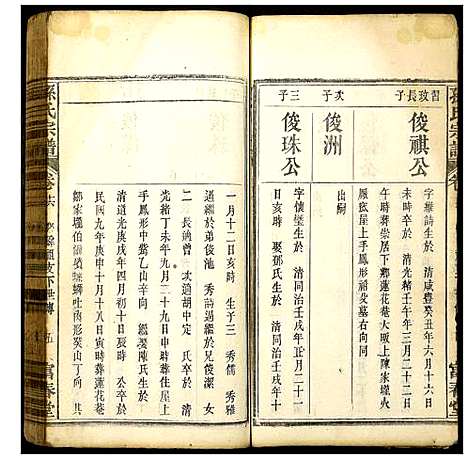 孫氏宗譜
習孜長子
俊祺公
字雅詩生於 清咸豊癸丑年六月十六
未時卒於 清光緒壬午年三月二十二日
午時葬崇居下鄭蓮花菴大坵上陳家壠火
鳳底屋上手鳳形裕公墓右向同
出嗣
次子
俊洲
三子
俊珠公
字懷璧生於 清同治壬戌年正月二十一
日亥時 娶鄧氏生於 清同治壬戌年十
一月十二日亥時 生子三 秀儒 秀雅
過繼於弟俊池 秀詩過繼於兄俊潔 女
二 長適曾 次適胡中定 氏卒於 清
光緒丁未年九月二十九日申時葬住屋上
手鳳形中嘴乙山辛向 繼娶陳氏生於
清道光庚戌年四月初十日癸時 公卒於
民國九年庚申十月十八日寅時葬蓮花菴
鄒家壠伯嶺獅吐肉形癸山丁向 其
孫氏宗譜
卷
五
富春堂
富春堂